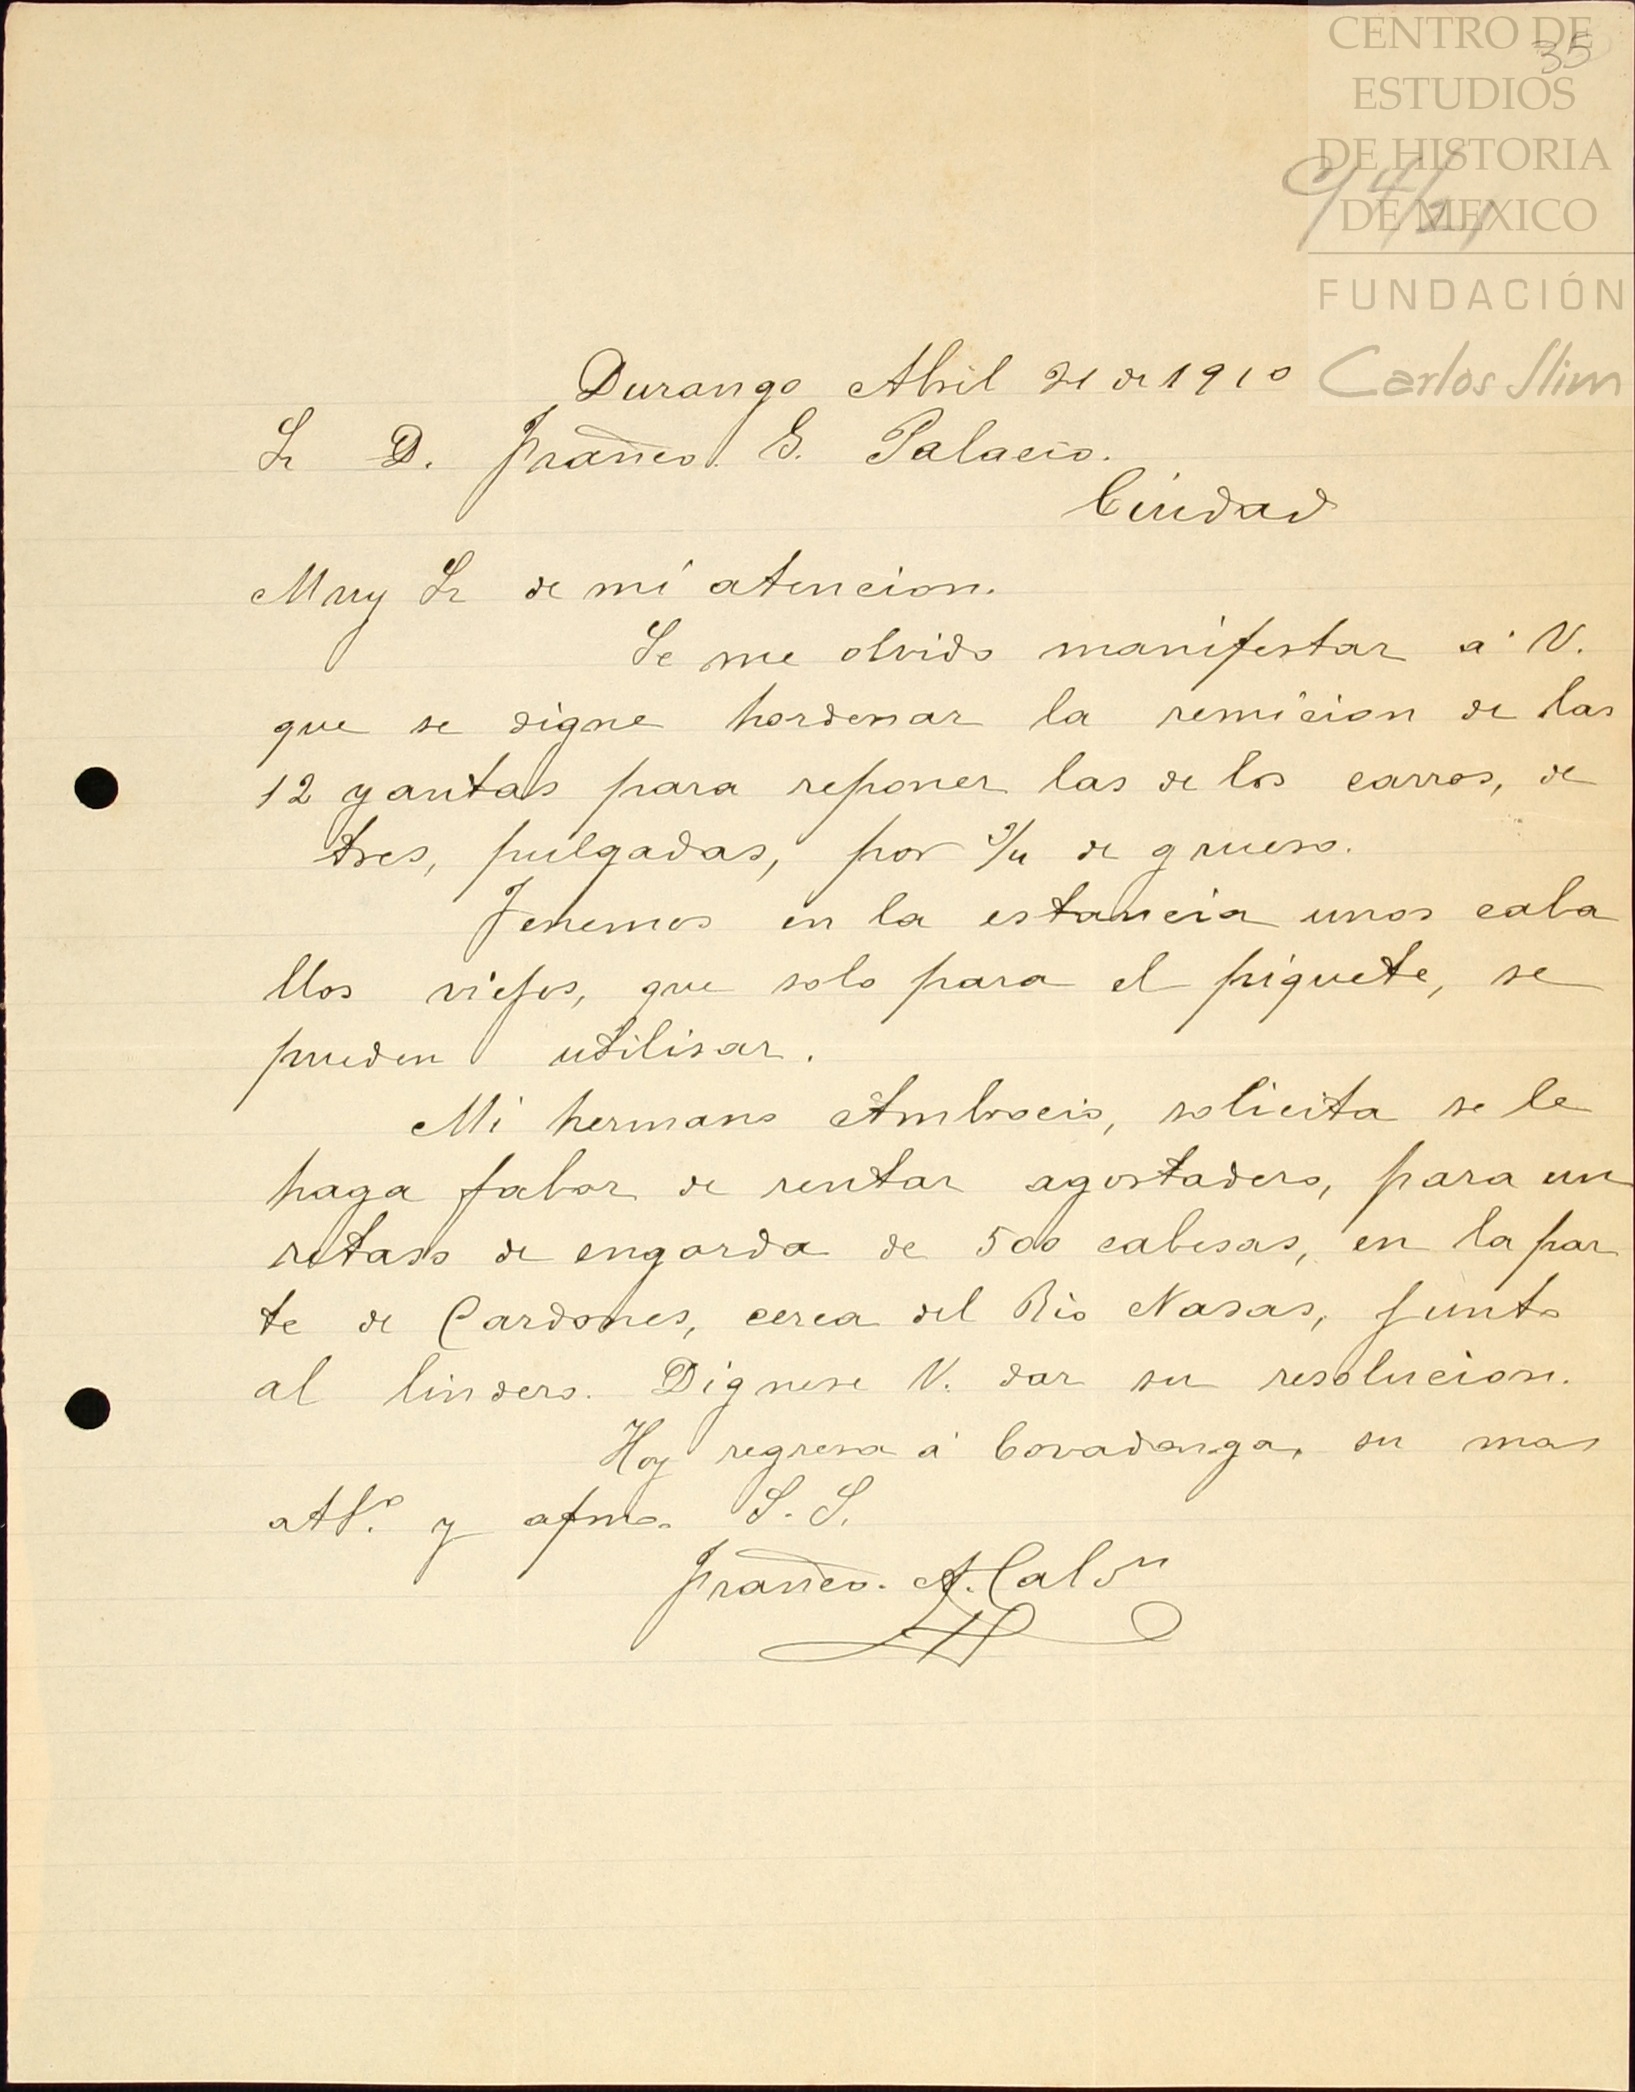 CENTRO DE
ESTUDIOS
DE HISTORIA
DE MEXICO
FUNDACIÓN
Carlos Slim
35
Durango Abril 21 de 1910
Sr D. Franco. G. Palacio.
Ciudad
Muy Sr de mi atencion.
Se me olvido manifestar á V.
que se digne hordenar la remicion de las
12 yantas para reponer las de los carros, de
tres, pulgadas, por 3/4 de grueso.
Tenemos en la estancia unos caba
llos viejos, que solo para el piquete, se
pueden utilisar.
Mi hermano Ambrocio, solicita se le
haga fabor de rentar agostadero, para un
retaso de engorda de 500 cabesas, en la par
te de Cardones, cerca del Rio Nasas, junto
al lindero. Dignese V. dar su resolucion.
Hoy regresa á Covadonga, su mas
att.o y afmo. S. S.
Franco. A.